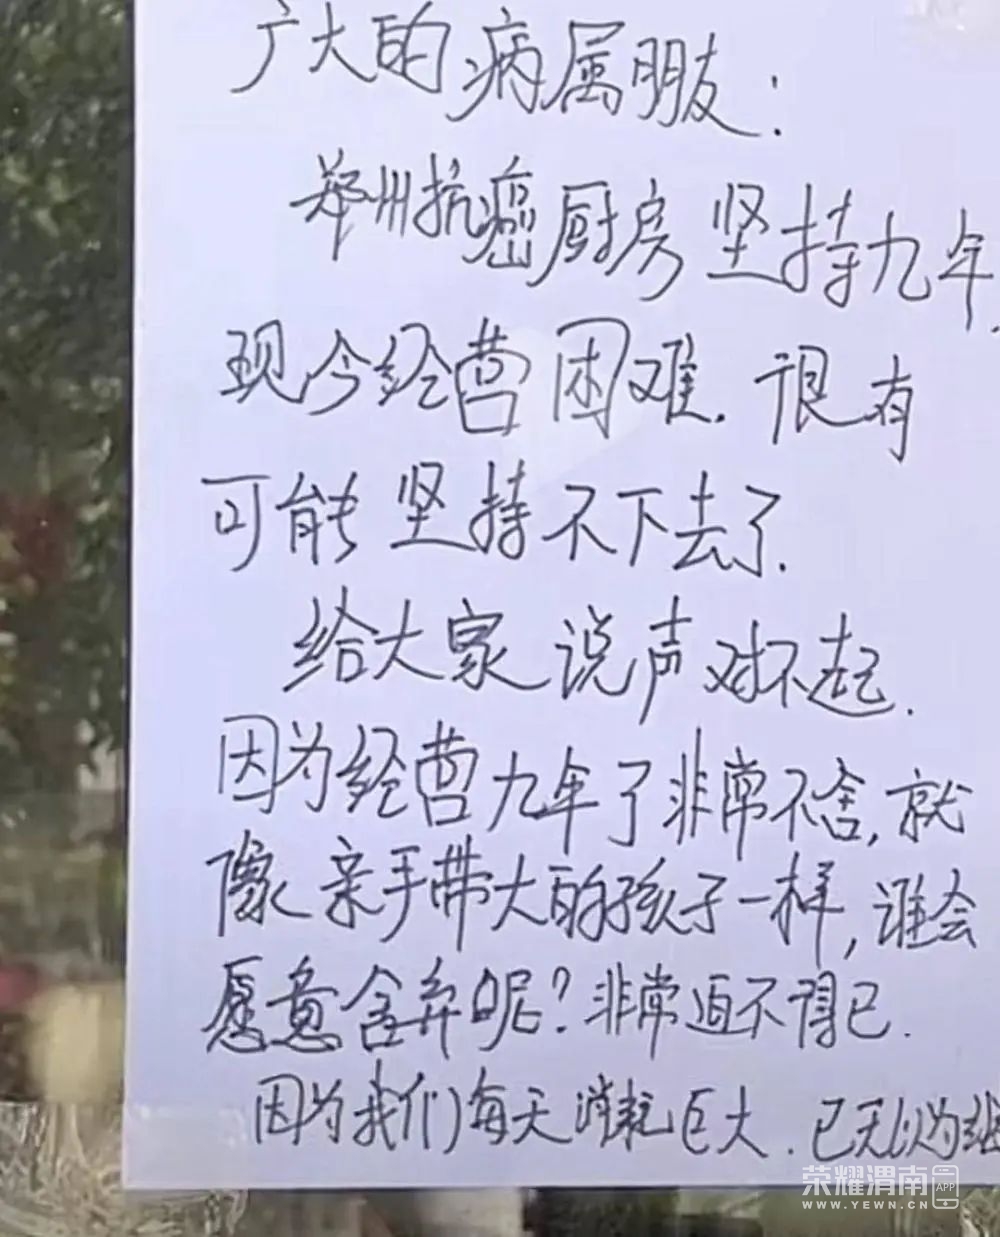 广大的病属朋友：
郑州抗癌厨房坚持九年，
现今经营困难．很有
可能坚持不下去了．
给大家说声对不起．
因为经营九年了非常不舍，就
像亲手带大的孩子一样，谁会
愿意舍弃呢？非常迫不得已．
因为我们每天消耗巨大．已无以为继
荣耀渭南 APP
WWW.YEWN.CN